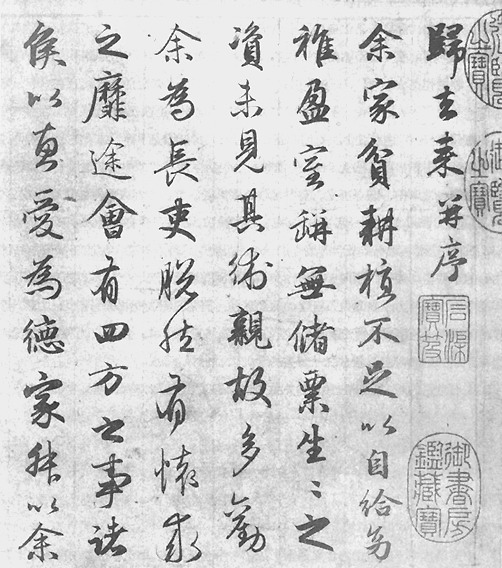 歸去來并序
余家貧耕植不足以自給幼
稚盈室缾無儲粟生〻之
資未見其術親故多勸
余為長吏脫然有懷求
之靡途會有四方之事諸
侯以惠愛為德家叔以余
石渠寶笈
御書房鑑藏寶